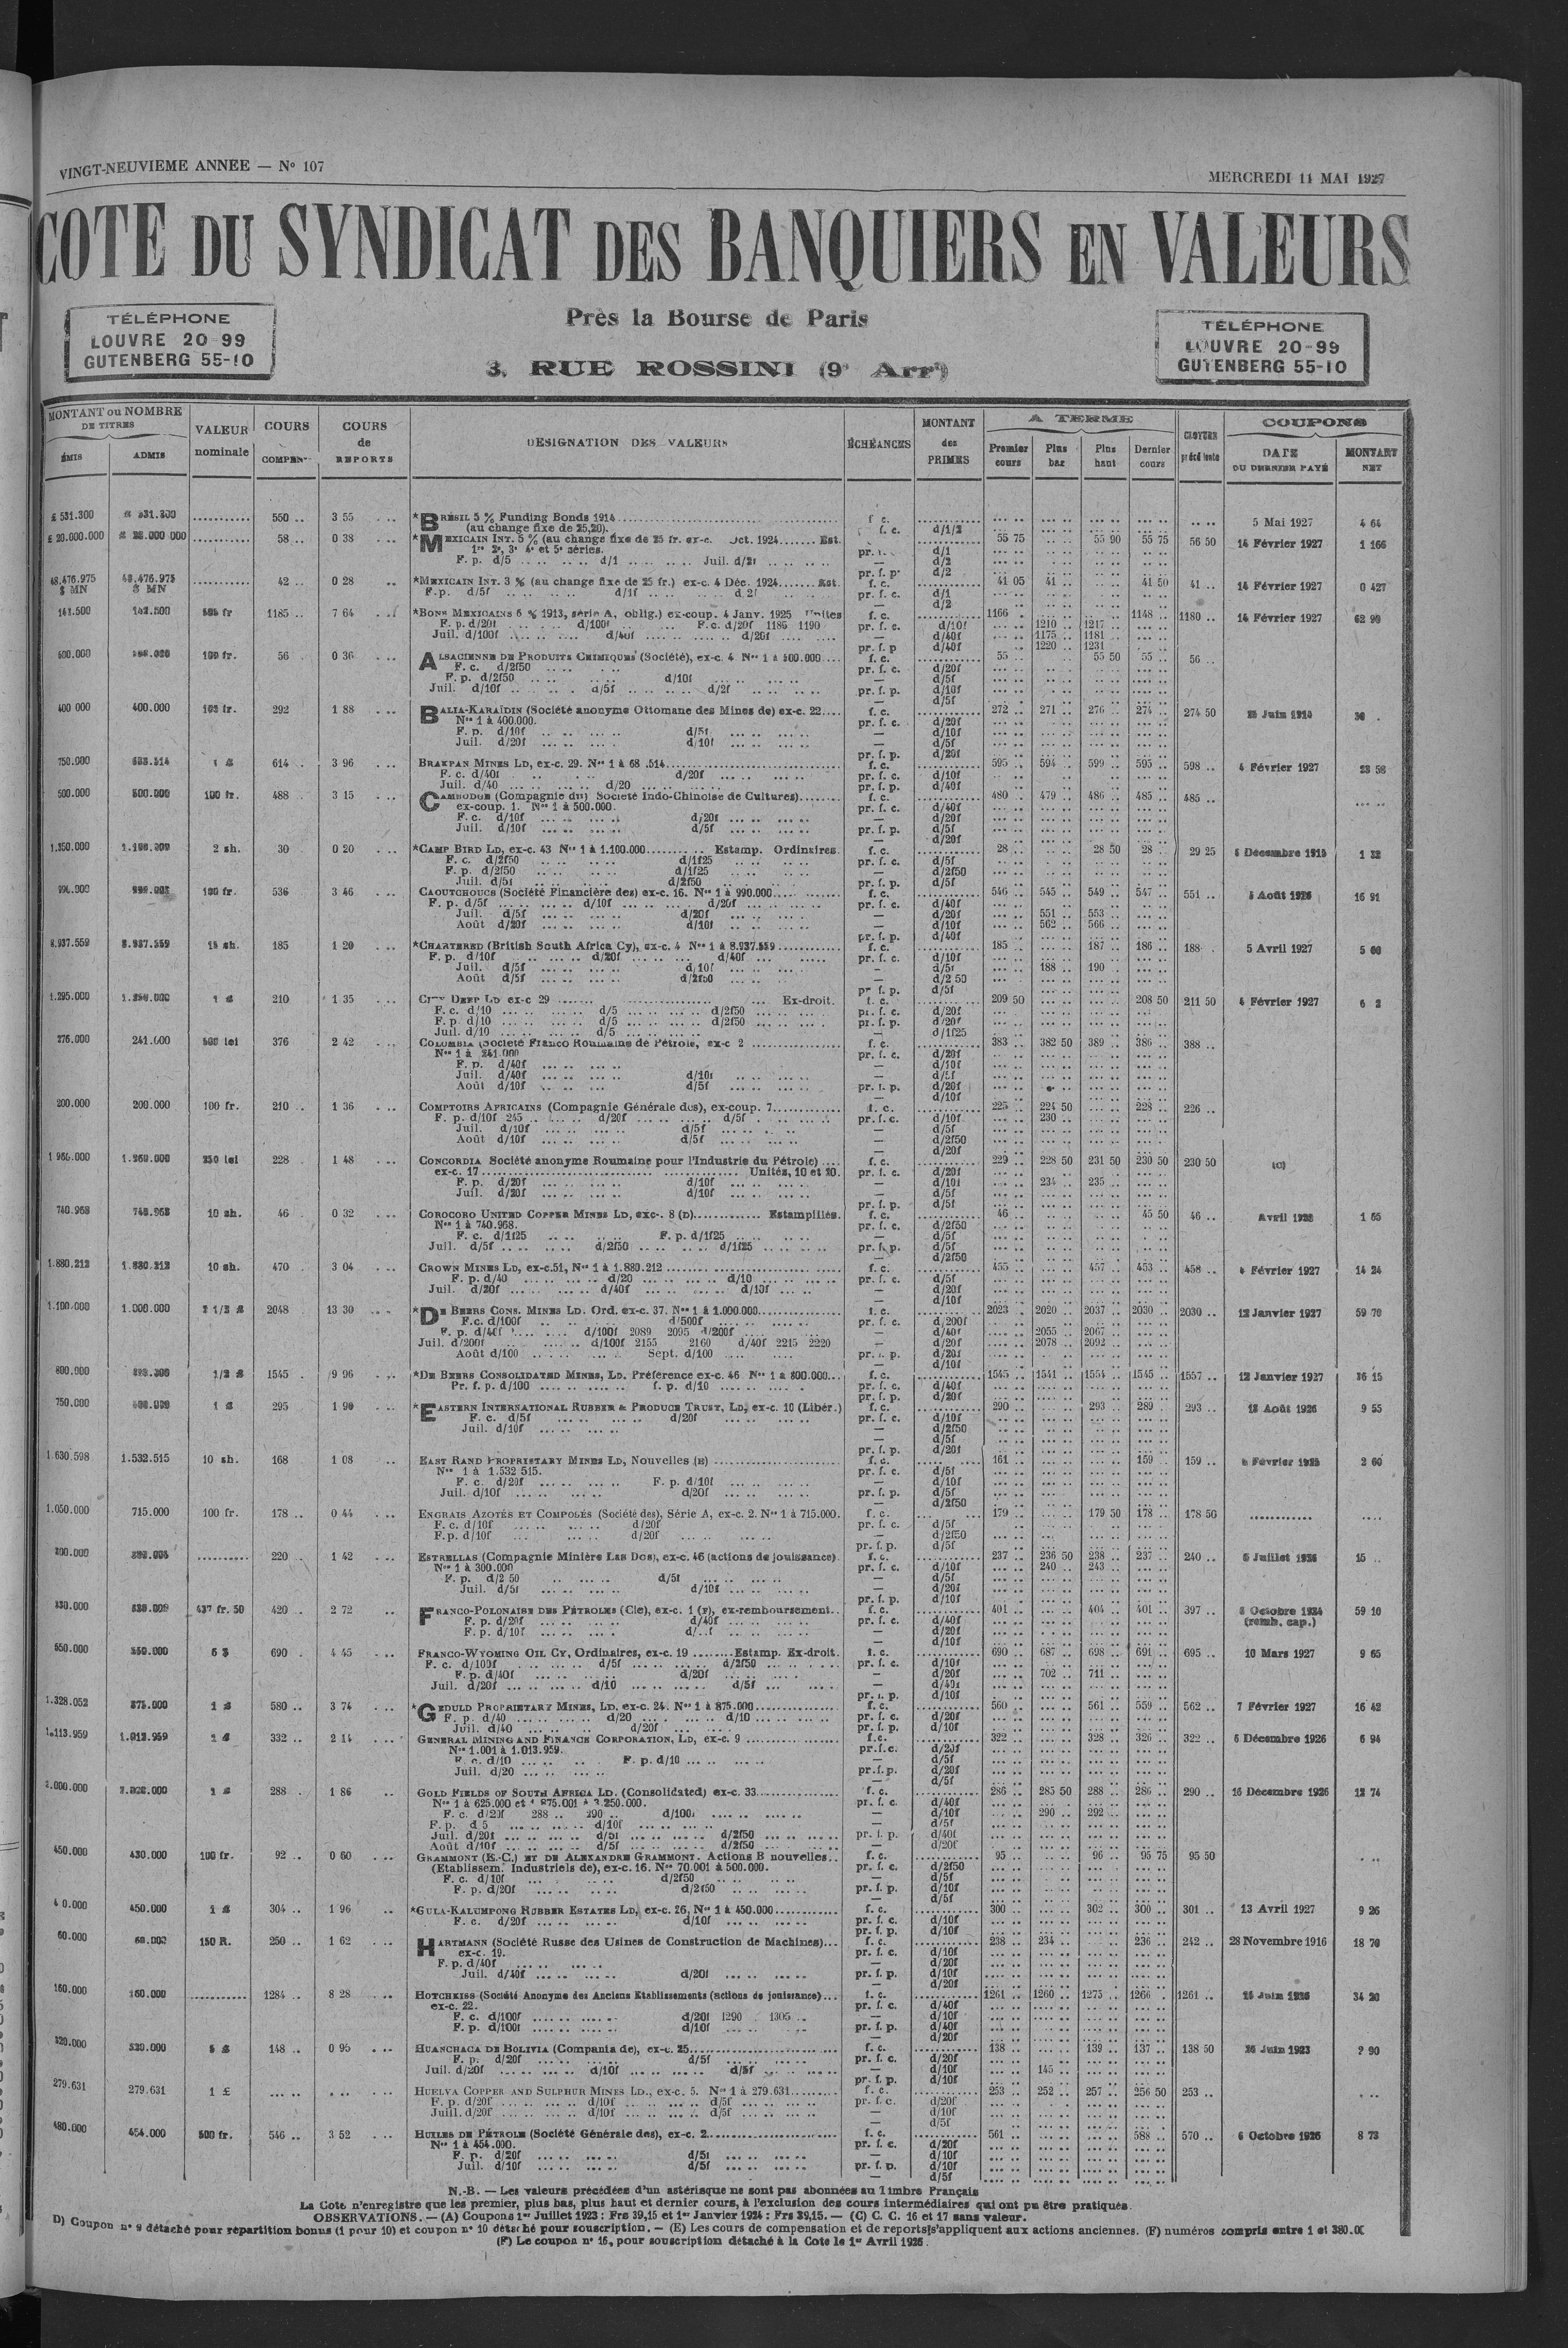 VINGT-NEUVIEME ANNEE — N° 107
MERCREDI 11 MAI 1927
COTE DU SYNDICAT DES BANQUIERS EN VALEURS
TÉLÉPHONE
LOUVRE 20 99
GUTENBERG 55-10
Près la Bourse de Paris
3, RUE ROSSINI (9e Arrt)
TÉLÉPHONE
LOUVRE 20-99
GUTENBERG 55-10
MONTANT ou NOMBRE DE TITRES
ÉMIS ADMIS
VALEUR nominale
COURS COMPEN
COURS de REPORTS
DÉSIGNATION DES VALEURS
ÉCHÉANCES
MONTANT des PRIMES
A TERME
Premier cours Plus bas Plus haut Dernier cours
CLOTURE précédente
COUPONS
DATE DU DERNIER PAYÉ MONTANT NET
£ 531.300 550 .. 3 55 *BRÉSIL 5 % Funding Bonds 1914 f. c. 5 Mai 1927 4 64
(au change fixe de 25,20). f. c. d/1/2
£ 20.000.000 58 .. 0 38 *MEXICAIN INT. 5 % (au change fixe de 25 fr. ex-c. Oct. 1924 Est. 55 75 55 90 55 75 56 50 14 Février 1927 1 166
1re 2e, 3e 4e et 5e séries. d/1
F. p. d/5 d/1 Juil. d/2f d/2
48.476.975 $ MN 48.476.975 $ MN 42 .. 0 28 *MEXICAIN INT. 3 % (au change fixe de 25 fr.) ex-c. 4 Déc. 1924 Est. f. c. 41 05 41 .. 41 50 41 .. 14 Février 1927 0 427
F. p. d/5f d/1f d 2f pr. f. c. d/1
141.500 1185 .. 7 64 *BONS MEXICAINS 6 % 1913, série A, oblig.) ex-coup. 4 Janv. 1925 Unités f. c. 1166 .. 1148 .. 1180 .. 14 Février 1927 62 90
F. p. d/20f d/100f F.c. d/20f 1185 1190 pr. f. c. d/10f 1210 .. 1217 ..
Juil. d/100f d/40f d/20f — d/40f 1175 .. 1181 ..
pr. f. p d/40f 1220 .. 1231 ..
500.000 100 fr. 56 0 36 ALSACIENNE DE PRODUITS CHIMIQUES (Société), ex-c. 4 Nos 1 à 500.000 f. c. 55 .. 55 50 55 .. 56 ..
F. c. d/2f50 pr. f. c. d/20f
F. p. d/2f50 d/10f — d/5f
Juil. d/10f d/5f d/2f pr. f. p. d/10f
— d/5f
400 000 400.000 292 1 88 BALIA-KARAÏDIN (Société anonyme Ottomane des Mines de) ex-c. 22 f. c. 272 .. 271 .. 276 .. 274 .. 274 50
Nos 1 à 400.000. pr. f. c. d/20f
F. p. d/10f d/5f — d/10f
Juil. d/20f d/10f — d/5f
pr. f. p. d/20f
750.000 614 3 96 BRAKPAN MINES LD, ex-c. 29. f. c. 595 .. 594 .. 599 .. 595 .. 598 .. 4 Février 1927
F. c. d/40f d/20f pr. f. c. d/10f
Juil. d/40 d/20 pr. f. p. d/40f
500.000 500.000 100 fr. 488 3 15 CAMBODGE (Compagnie du) Société Indo-Chinoise de Cultures) f. c. 480 .. 479 .. 486 .. 485 .. 485 ..
ex-coup. 1. Nos 1 à 500.000. pr. f. c. d/40f
F. c. d/10f d/20f — d/20f
Juil. d/10f d/5f pr. f. p. d/5f
— d/20f
2 sh. 30 0 20 *CAMP BIRD LD, ex-c. 43 Nos 1 à 1.100.000 Estamp. Ordinaires. f. c. 28 .. 28 50 28 .. 29 25 1 32
F. c. d/2f50 d/1f25 pr. f. c. d/5f
F. p. d/2f50 d/1f25 — d/2f50
Juil. d/5f d/2f50 pr. f. p. d/5f
100 fr. 536 3 46 CAOUTCHOUCS (Société Financière des) ex-c. 16. Nos 1 à 990.000 f. c. 546 .. 545 .. 549 .. 547 .. 551 .. 16 91
F. p. d/5f d/10f d/20f pr. f. c. d/40f
Juil. d/5f d/20f — d/20f 551 .. 553 ..
Août d/20f d/10f — d/10f 562 .. 566 ..
pr. f. p. d/40f
8.937.559 8.937.559 15 sh. 185 1 20 *CHARTERED (British South Africa Cy), ex-c. 4 Nos 1 à 8.937.559 f. c. 185 .. 187 .. 186 .. 188 5 Avril 1927 5 60
F. p. d/10f d/20f d/40f pr. f. c. d/10f
Juil. d/5f d/10f — d/5f 188 .. 190 ..
Août d/5f d/2f50 — d/2 50
pr. f. p. d/5f
1.295.000 210 1 35 CITY DEEP LD ex-c 29 Ex-droit. f. c. 209 50 208 50 211 50 4 Février 1927
F. c. d/10 d/5 d/2f50 pr. f. c. d/20f
F. p. d/10 d/5 d/2f50 pr. f. p. d/20f
Juil. d/10 d/5 — d/1f25
276.000 241.000 500 lei 376 2 42 COLUMBIA (Société Franco Roumaine de Pétrole, ex-c 2 f. c. 383 .. 382 50 389 .. 386 .. 388 ..
Nos 1 à 241.000 pr. f. c. d/20f
F. p. d/40f — d/10f
Juil. d/40f d/10f — d/5f
Août d/10f d/5f pr. f. p. d/20f
— d/10f
200.000 200.000 100 fr. 210 .. 1 36 COMPTOIRS AFRICAINS (Compagnie Générale des), ex-coup. 7 f. c. 225 .. 224 50 228 .. 226 ..
F. p. d/10f 245 d/20f d/5f pr. f. c. d/10f 230 ..
Juil. d/10f d/5f — d/5f
Août d/10f d/5f — d/2f50
— d/20f
250 lei 228 1 48 CONCORDIA Société anonyme Roumaine pour l'Industrie du Pétrole) f. c. 229 .. 228 50 231 50 230 50 230 50 (C)
ex-c. 17 Unités, 10 et 20. pr. f. c. d/20f
F. p. d/20f d/10f — d/10f 234 .. 235 ..
Juil. d/20f d/10f — d/5f
pr. f. p. d/5f
740.968 740.968 10 sh. 46 0 32 COROCORO UNITED COPPER MINES LD, exc-. 8 (D) Estampillés. f. c. 46 .. 45 50 46 .. 1 65
Nos 1 à 740.968. pr. f. c. d/2f50
F. c. d/1f25 F. p. d/1f25 — d/5f
Juil. d/5f d/2f50 d/1f25 pr. f. p. d/5f
— d/2f50
1.880.212 1.880.212 10 sh. 470 3 04 CROWN MINES LD, ex-c.51, Nos 1 à 1.880.212 f. c. 455 .. 457 .. 453 .. 458 .. 4 Février 1927 14 24
F. p. d/40 d/20 d/10 pr. f. c. d/5f
Juil. d/20f d/40f d/10f — d/20f
— d/10f
1.100.000 1.000.000 2 1/2 £ 2048 13 30 *DE BEERS CONS. MINES LD. Ord. ex-c. 37. Nos 1 à 1.000.000 f. c. 2023 .. 2020 .. 2037 .. 2030 .. 2030 .. 12 Janvier 1927 59 70
F.c. d/100f d/500f pr. f. c. d/200f
F. p. d/40f d/100f 2089 2095 d/200f — d/40f 2055 .. 2067 ..
Juil. d/200f d/100f 2155 2160 d/40f 2215 2220 — d/20f 2078 .. 2092 ..
Août d/100 Sept. d/100 pr. f. p. d/20f
— d/10f
800.000 1/2 £ 1545 9 96 *DE BEERS CONSOLIDATED MINES, LD. Préférence ex-c. 46 Nos 1 à 800.000 f. c. 1545 .. 1541 .. 1554 .. 1545 .. 1557 .. 12 Janvier 1927 36 15
Pr. f. p. d/100 f. p. d/10 pr. f. c. d/40f
pr. f. p. d/20f
750.000 1 £ 295 1 90 *EASTERN INTERNATIONAL RUBBER & PRODUCE TRUST, LD, ex-c. 10 (Libér.) f. c. 290 .. 293 .. 289 .. 293 .. 9 55
F. c. d/5f d/20f pr. f. c. d/10f
Juil. d/10f — d/2f50
— d/5f
pr. f. p. d/20f
1.630.598 1.532.515 10 sh. 168 1 08 EAST RAND PROPRIETARY MINES LD, Nouvelles (E) f. c. 161 .. 159 .. 159 .. 2 60
Nos 1 à 1.532 515. pr. f. c. d/5f
F. c. d/20f F. p. d/10f — d/10f
Juil. d/10f d/20f pr. f. p. d/5f
— d/2f50
1.050.000 715.000 100 fr. 178 .. 0 44 ENGRAIS AZOTÉS ET COMPOSÉS (Société des), Série A, ex-c. 2. Nos 1 à 715.000. f. c. 179 .. 179 50 178 .. 178 50
F. c. d/10f d/20f pr. f. c. d/5f
F.p. d/10f d/20f — d/2f50
pr. f. p. d/5f
220 .. 1 42 ESTRELLAS (Compagnie Minière Las Dos), ex-c. 46 (actions de jouissance). f. c. 237 .. 236 50 238 .. 237 .. 240 .. 15 ..
Nos 1 à 300.000 pr. f. c. d/10f 240 .. 243 ..
F. p. d/2 50 d/5f — d/5f
Juil. d/5f d/10f — d/20f
pr. f. p. d/10f
437 fr. 50 420 .. 2 72 FRANCO-POLONAISE DES PÉTROLES (Cie), ex-c. 1 (F), ex-remboursement f. c. 401 .. 404 .. 401 .. 397 .. 59 10
F. p. d/20f d/40f pr. f. c. d/40f (remb. cap.)
F. p. d/10f — d/20f
— d/10f
550.000 550.000 5 $ 690 4 45 FRANCO-WYOMING OIL CY, Ordinaires, ex-c. 19 Estamp. Ex-droit. f. c. 690 .. 687 .. 698 .. 691 .. 695 .. 10 Mars 1927 9 65
F. c. d/100f d/5f d/2f50 pr. f. c. d/10f
F. p. d/40f d/20f — d/20f 702 .. 711 ..
Juil. d/20f d/10 d/5f — d/40f
pr. f. p. d/10f
1.328.052 875.000 1 £ 580 .. 3 74 *GEDULD PROPRIETARY MINES, LD, ex-c. 24. Nos 1 à 875.000 f. c. 560 .. 561 .. 559 .. 562 .. 7 Février 1927 16 42
F. p. d/40 d/20 d/10 pr. f. c. d/20f
Juil. d/40 d/20f pr. f. p. d/10f
1.113.959 1.013.959 1 £ 332 .. 2 14 GENERAL MINING AND FINANCE CORPORATION, LD, ex-c. 9 f. c. 322 .. 328 .. 326 .. 322 .. 6 Décembre 1926 6 94
Nos 1.001 à 1.013.959. pr.f.c. d/20f
F. c. d/10 F. p. d/10 — d/5f
Juil. d/20 pr.f.p. d/20f
— d/5f
1 £ 288 .. 1 86 GOLD FIELDS OF SOUTH AFRICA LD. (Consolidated) ex-c. 33 f. c. 286 .. 285 50 288 .. 286 .. 290 .. 16 Décembre 1926 12 74
Nos 1 à 625.000 et 1 875.001 à 3.250.000. pr. f. c. d/40f
F. c. d/20f 288 .. 290 .. d/100f — d/10f 290 .. 292 ..
F. p. d 5 d/10f — d/5f
Juil. d/20f d/5f d/2f50 pr. f. p. d/40f
Août d/10f d/5f d/2f50 — d/20f
450.000 430.000 100 fr. 92 .. 0 60 GRAMMONT (E.-C.) ET DE ALEXANDRE GRAMMONT. Actions B nouvelles f. c. 95 .. 96 .. 95 75 95 50
(Etablissem. Industriels de), ex-c. 16. Nos 70.001 à 500.000. pr. f. c. d/2f50
F. c. d/10f d/2f50 — d/5f
F. p. d/20f d/2f50 pr. f. p. d/10f
— d/5f
450.000 1 £ 304 .. 1 96 *GULA-KALUMPONG RUBBER ESTATES LD, ex-c. 26, Nos 1 à 450.000 f. c. 300 .. 302 .. 300 .. 301 .. 13 Avril 1927 9 26
F. c. d/20f d/10f pr. f. c. d/10f
pr. f. p. d/10f
60.000 60.000 150 R. 250 .. 1 62 HARTMANN (Société Russe des Usines de Construction de Machines) f. c. 238 .. 234 .. 236 .. 242 .. 28 Novembre 1916 18 70
ex-c. 19. pr. f. c. d/10f
F. p. d/40f — d/20f
Juil. d/40f d/20f pr. f. p. d/10f
— d/20f
160.000 160.000 1284 .. 8 28 HOTCHKISS (Société Anonyme des Anciens Etablissements (actions de jouissance) f. c. 1261 .. 1260 .. 1275 .. 1266 1261 .. 34 20
ex-c. 22. pr. f. c. d/40f
F. c. d/100f d/20f 1290 1305 — d/10f
F. p. d/100f d/10f pr. f. p. d/40f
— d/20f
320.000 320.000 148 .. 0 95 HUANCHACA DE BOLIVIA (Compania de), ex-c. 25 f. c. 138 .. 139 .. 137 .. 138 50
F. p. d/20f d/5f pr. f. c. d/20f
Juil. d/20f d/10f d/5f — d/10f 145 ..
pr. f. p. d/10f
279.631 279.631 1 £ HUELVA COPPER AND SULPHUR MINES LD., ex-c. 5. Nos 1 à 279.631 f. c. 253 .. 252 .. 257 .. 256 50 253 ..
F. p. d/20f d/10f d/5f pr. f. c. d/20f
Juill. d/20f d/10f d/5f — d/10f
— d/5f
480.000 454.000 500 fr. 546 .. 3 52 HUILES DE PÉTROLE (Société Générale des), ex-c. 2 f. c. 561 .. 588 .. 570 .. 6 Octobre 1926 8 73
Nos 1 à 454.000. pr. f. c. d/20f
F. p. d/20f d/5f — d/10f
Juil. d/10f d/5f pr. f. p. d/10f
— d/5f
N.-B. — Les valeurs précédées d'un astérisque ne sont pas abonnées au Timbre Français
La Cote n'enregistre que les premier, plus bas, plus haut et dernier cours, à l'exclusion des cours intermédiaires qui ont pu être pratiqués.
OBSERVATIONS. — (A) Coupons 1er Juillet 1923 : Frs 39,15 et 1er Janvier 1924 : Frs 39,15. — (C) C. C. 16 et 17 sans valeur.
D) Coupon n° 9 détaché pour répartition bonus (1 pour 10) et coupon n° 10 détaché pour souscription. — (E) Les cours de compensation et de reports s'appliquent aux actions anciennes. (F) numéros compris entre 1 et 380.00
(F) Le coupon n° 15, pour souscription détaché à la Cote le 1er Avril 1926.